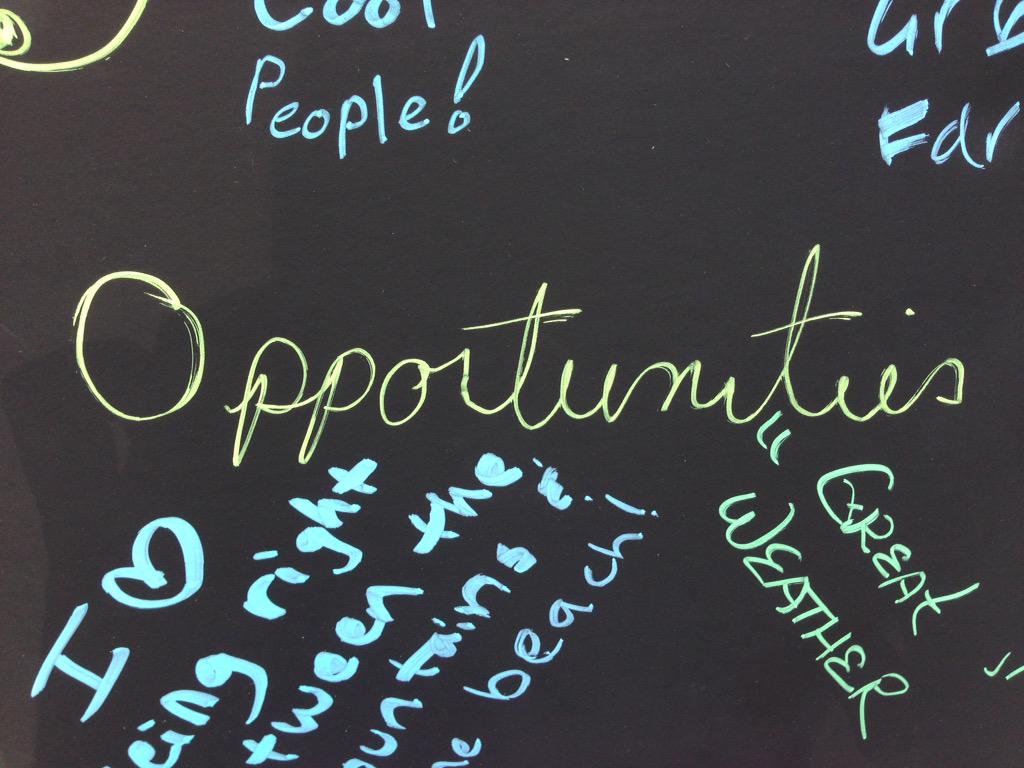 Cool
People!
Opportunities
I ♡
being right
between the
mountains &
the beach!
"GREAT
WEATHER